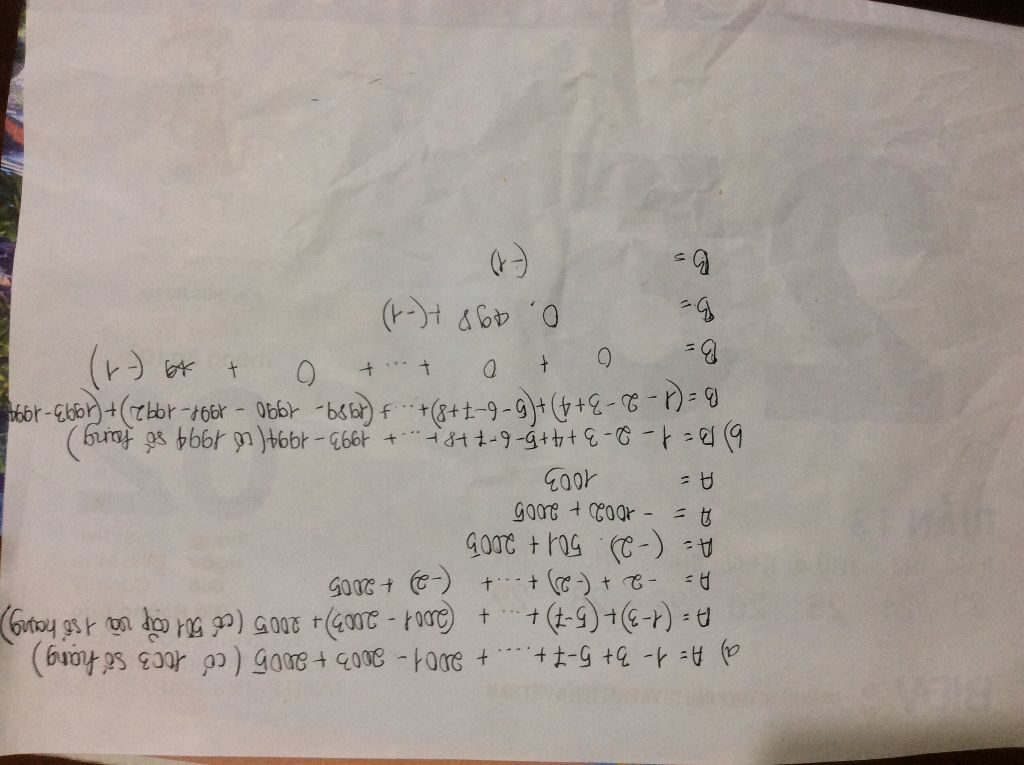 a) A = 1 - 3 + 5 - 7 + ..... + 2001 - 2003 + 2005 (có 1003 số hạng)
A = (1-3) + (5-7) + ... + (2001 - 2003) + 2005 (có 501 cặp và 1 số hạng)
A = -2 + (-2) + ... + (-2) + 2005
A = (-2). 501 + 2005
A = - 1002 + 2005
A = 1003
b) B = 1 - 2 - 3 + 4 + 5 - 6 - 7 + 8 + ... + 1993 - 1994 (có 1994 số hạng)
B = (1 - 2 - 3 + 4) + (5 - 6 - 7 + 8) + ... + (1989 - 1990 - 1991 - 1992) + (1993 - 1994
B = 0 + 0 + ... + 0 + (-1)
B = 0. 498 + (-1)
B = (-1)